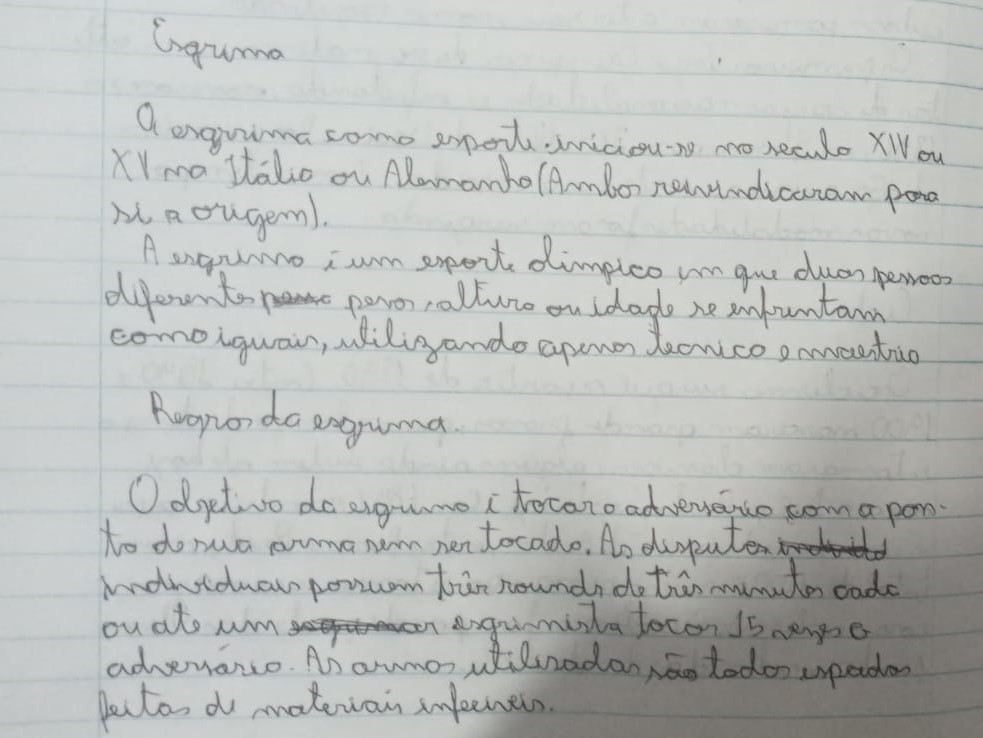 Esgrima
A esgrima como esporte iniciou-se no seculo XIV ou
XV na Itália ou Alemanha (Ambos reinvindicaram para
si a origem).
A esgrima é um esporte olimpico em que duas pessoas
diferentes pesos, altura ou idade se enfrentam
como iguais, utilizando apenas tecnica e maestria
Regras da esgrima.
O objetivo da esgrima é tocar o adversário com a pon-
ta de sua arma sem ser tocado. As disputas
individuais possuem três rounds de três minutos cada
ou ate um esgrimista tocar 15 vezes o
adversário. As armas utilisadas são todas espadas
feitas de materiais